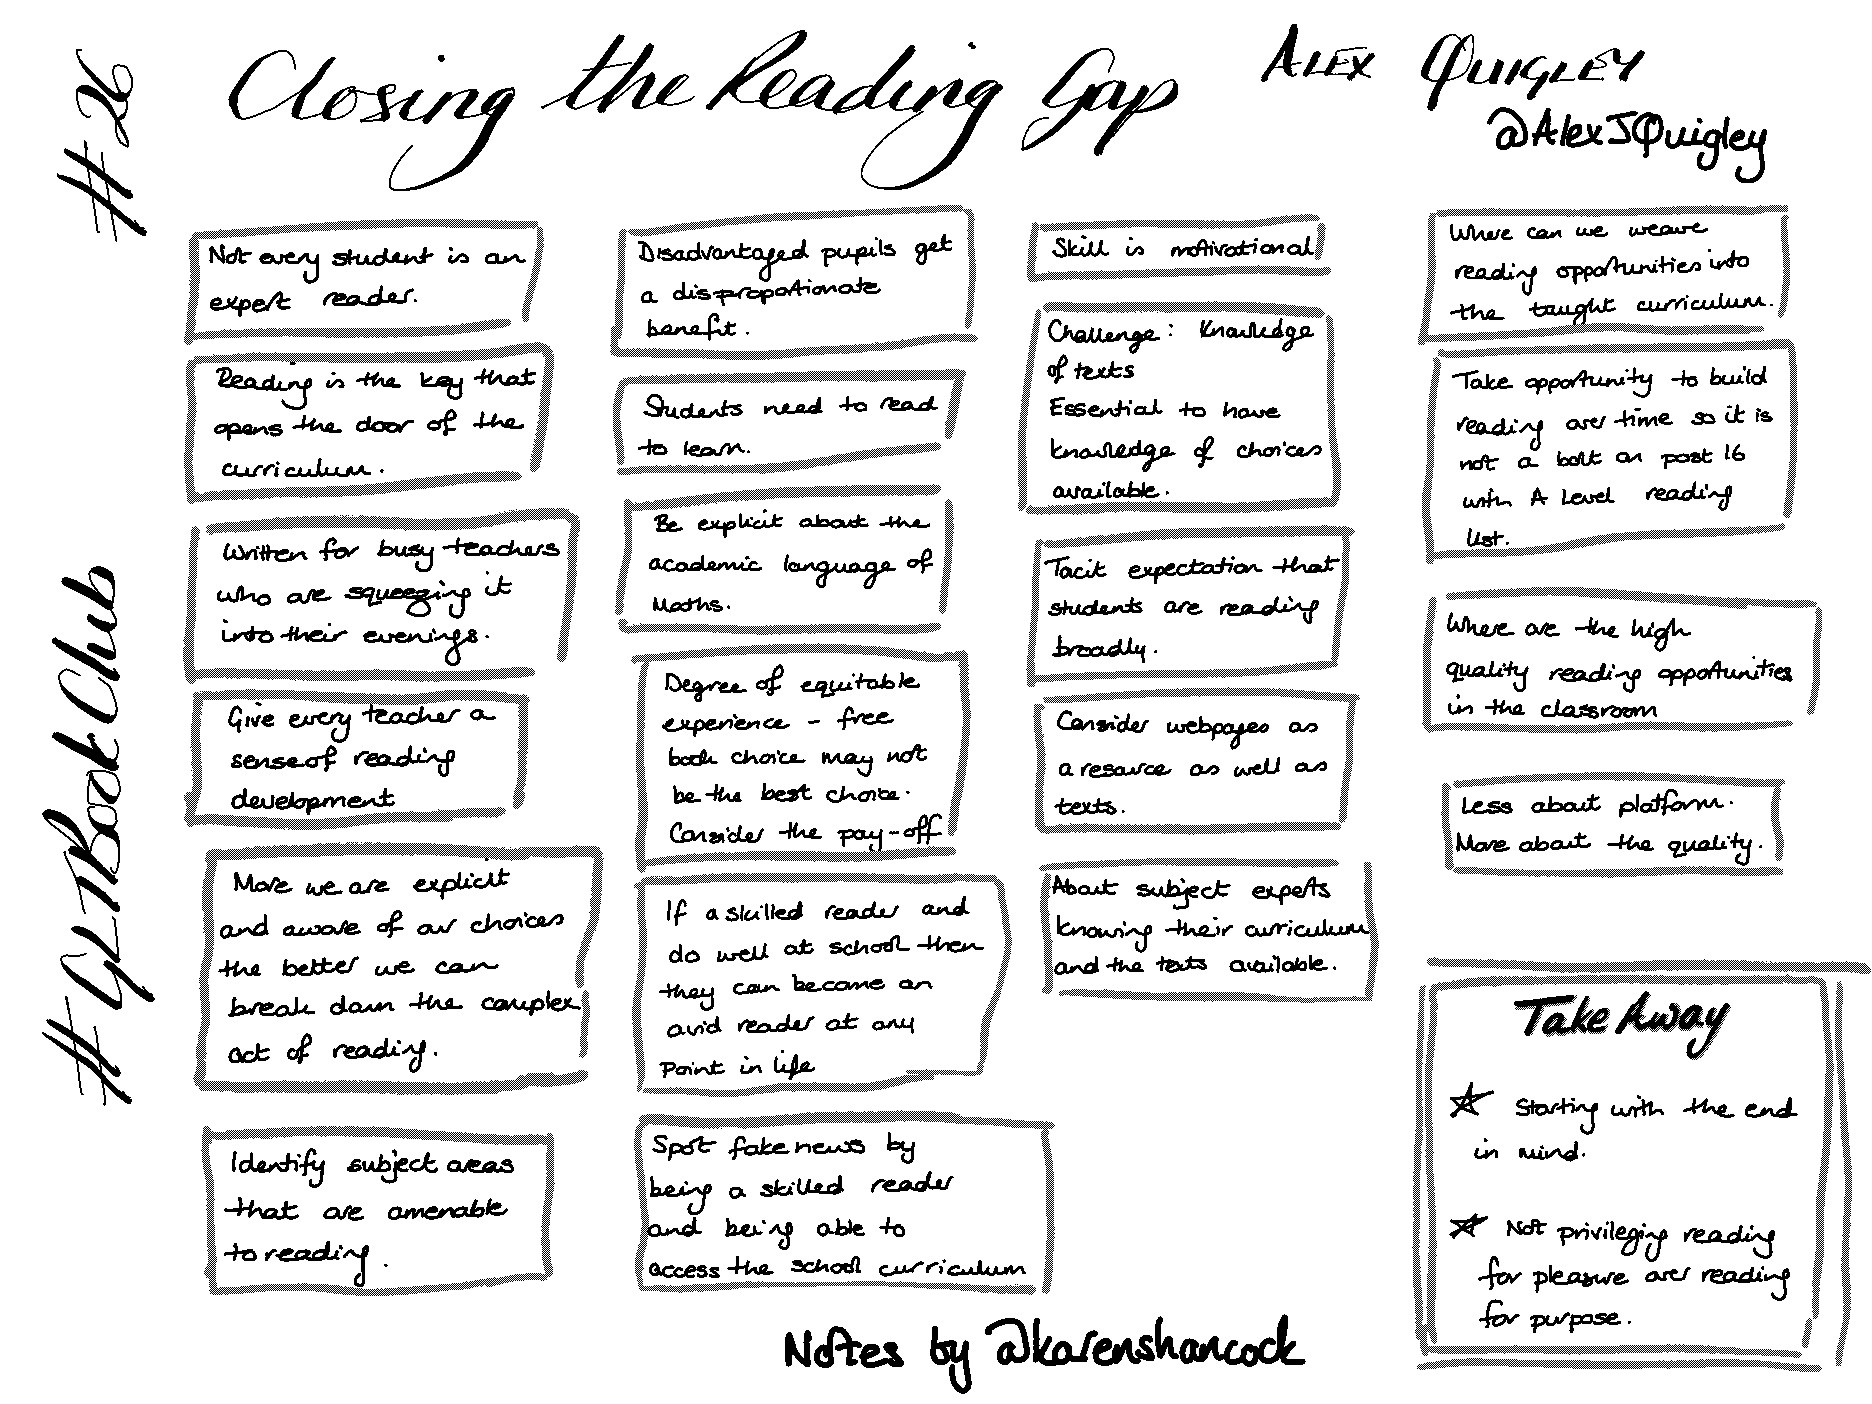 #26
Closing the Reading Gap
ALEX QUIGLEY
@AlexJQuigley
#GLTBookClub
Not every student is an
expert reader.
Reading is the key that
opens the door of the
curriculum.
Written for busy teachers
who are squeezing it
into their evenings.
Give every teacher a
sense of reading
development
More we are explicit
and aware of our choices
the better we can
break down the complex
act of reading.
Identify subject areas
that are amenable
to reading.
Disadvantaged pupils get
a disproportionate
benefit.
Students need to read
to learn.
Be explicit about the
academic language of
Maths.
Degree of equitable
experience - free
book choice may not
be the best choice.
Consider the pay-off
If a skilled reader and
do well at school then
they can become an
avid reader at any
point in life
Spot fake news by
being a skilled reader
and being able to
access the school curriculum
Skill is motivational
Challenge: Knowledge
of texts
Essential to have
knowledge of choices
available.
Tacit expectation that
students are reading
broadly.
Consider webpages as
a resource as well as
texts.
About subject experts
knowing their curriculum
and the texts available.
Where can we weave
reading opportunities into
the taught curriculum.
Take opportunity to build
reading over time so it is
not a bolt on post 16
with A Level reading
list.
Where are the high
quality reading opportunities
in the classroom
Less about platform.
More about the quality.
Take Away
☆ Starting with the end
in mind.
☆ Not privileging reading
for pleasure over reading
for purpose.
Notes by @karenshancock